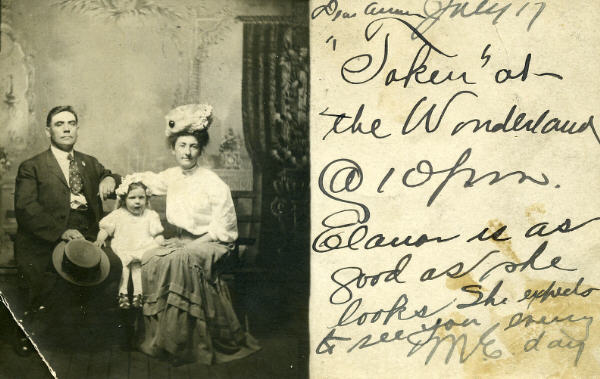 Dear July 17
"Taken" at
the Wonderland
@ 10 pm.
Elanor is as
good as she
looks. She expects
to see you every
day